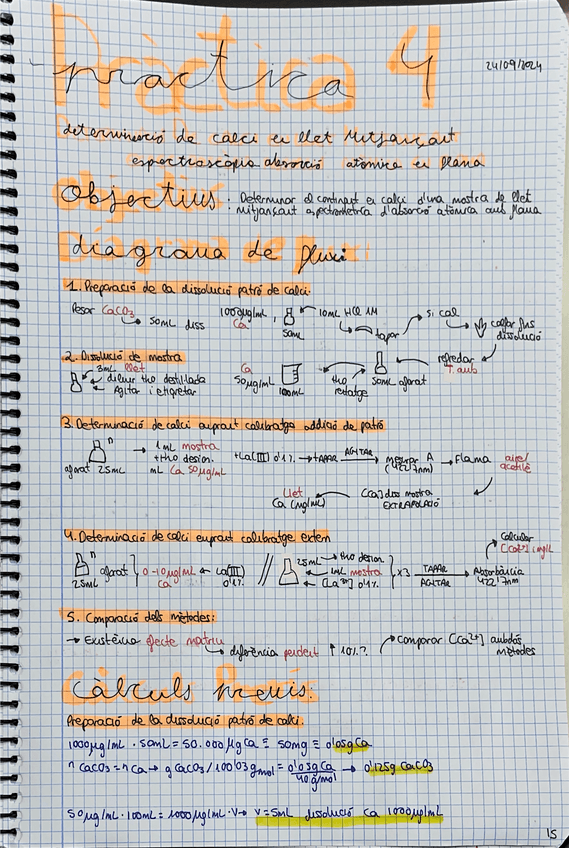 Pràctica 4
24/09/2024
determinació de calci en llet mitjançant
espectroscòpia absorció atòmica en flama
Objectius: · Determinar el contingut en calci d'una mostra de llet
mitjançant espectrometria d'absorció atòmica amb flama
diagrama de fluxi
1. Preparació de la dissolució patró de calci.
Pesar CaCO3 → 50mL diss 1000µg/mL Ca 50mL ← 10mL HCl 1M → tapar → si cal → calfar fins dissolució
2. Dissolució de mostra
3mL llet
diluir H2O destil·lada
Agitar i etiquetar
Ca 50µg/mL 100mL H2O rentatge 50mL aforat refredar T. amb
3. Determinació de calci emprant calibratge addició de patró
n aforat 25mL → 1mL mostra +H2O desion. mL Ca 50µg/mL +La(III) 0'1% → TAPAR AGITAR → mesurar A (422'7nm) → Flama aire/acetilè
Llet Ca (mg/mL) ← [Ca] diss mostra EXTRAPOLACIÓ
4. Determinació de calci emprant calibratge extern
n 25mL aforat } 0-10µg/mL Ca ← La(III) 0'1% // 25mL → H2O desion. ← 1mL mostra ← [La3+] 0'1% } x3 TAPAR AGITAR → Absorbància 422'7nm → Calcular [Ca2+] mg/L
5. Comparació dels mètodes:
→ Existència efecte matriu → diferència pendent ↑ 10%? → Comparar [Ca2+] ambdós mètodes
Càlculs Previs:
Preparació de la dissolució patró de calci.
1000µg/mL · 50mL = 50.000µg Ca ≡ 50mg ≡ 0'05g Ca
n CaCO3 = n Ca → g CaCO3/100'03 g/mol = 0'05g Ca / 40g/mol → 0'125g CaCO3
50µg/mL · 100mL = 1000µg/mL · V → V = 5mL dissolució Ca 1000µg/mL
15